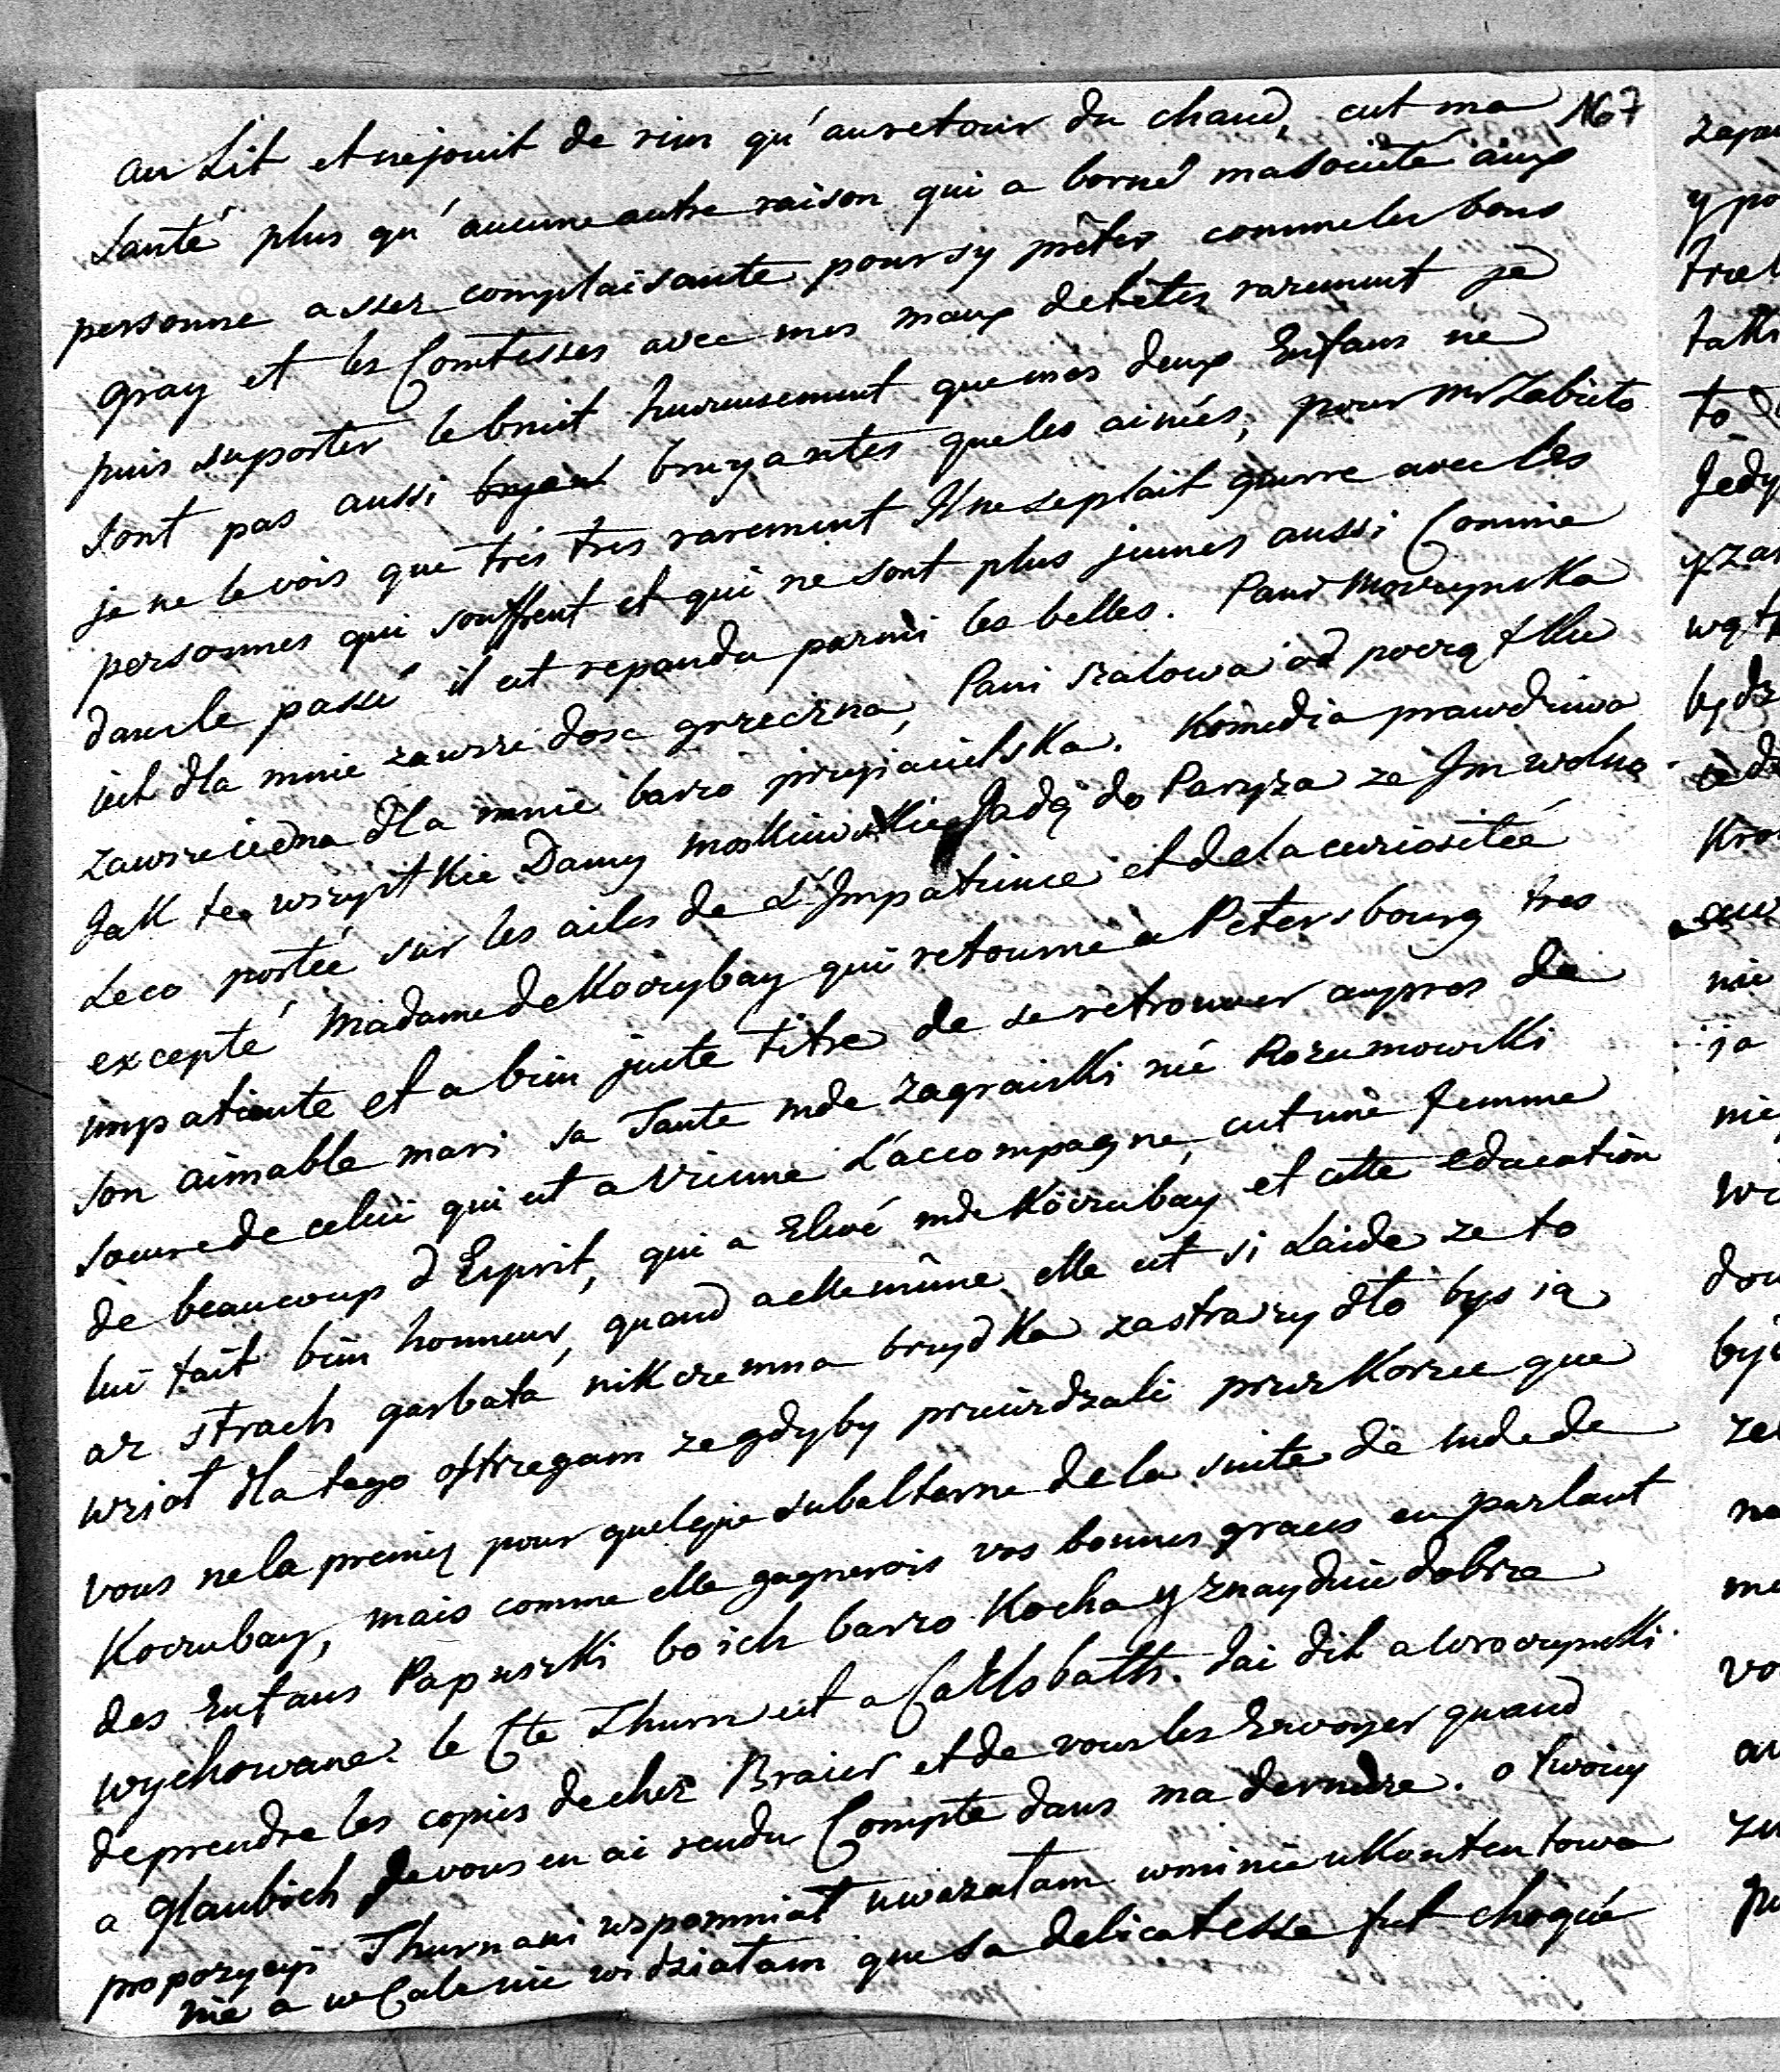 167
au Lit et nejouit de rien qu'auretour du chaud, cest ma
santé plus qu'aucune autre raison qui a borné masocieté aux
personne assez complaisante poursy prêter, commeles bons
gray et les Comtesses avec mes maux detêtes rarement je
puis suporter lebruit heureusement quemes deux Enfans ne
sont pas aussi bruyantes queles ainées, pour mr Zabieto
je ne levois que très tres rarement Ilneseplait guerre avec les
personnes qui souffrent et qui ne sont plus jeunes aussi Comme
dansle passé il est repandu parmi les belles. Pani Morzynska
iest dla mnie zawsze dosc grzeczna, Pani Szalowa od początku
zawsze iedna dla mnie barzo przyiacielska. Komedia prawdziwa
Jak te wszystkie Damy moskiewskie Jadą do Paryza ze Im wolno
Leco portée sur les ailes de L'Impatience et delacuriositeé
excepté Madame de Koczubay qui retourne a Petersbourg tres
impatiente et a bien juste titre de se retrouver aupres de
son aimable mari sa Tante mde Zagraiski né Rozumowski
soeurede celui qui est a Vienne L'accompagne, cest une femme
de beaucoup d'Esprit, qui a Elevé mde Koczubay et cette education
lui fait bien honneur, quand a ellemême elle est si Laide ze to
az strach garbata nikczemna brzydka zastraszydlo bys ią
wziol dla tego ostrzegam ze gdyby przeiezdzali przez Korzec que
vous nela preniez pour quelque subalterne dela suite de mdede
Koczubay, mais comme elle gagnerois vos bonnes graces en parlant
des Enfans Papuszki bo ich barzo Kocha y znayduie dobrze
wychowane. le Cte Thurn est a Carlsbath. Jai dit a Wroczynski
deprendre les copies dechez Braier et de vousles Envoyer quand
a Glaubich Jevous en ai rendu Compte dans ma derniere. o twoiey
propozycyi Thurnani wspomniał uwazałam wmnie ukontentowa
nie a wcale nie widziałam que sa delicatesse fut choquée